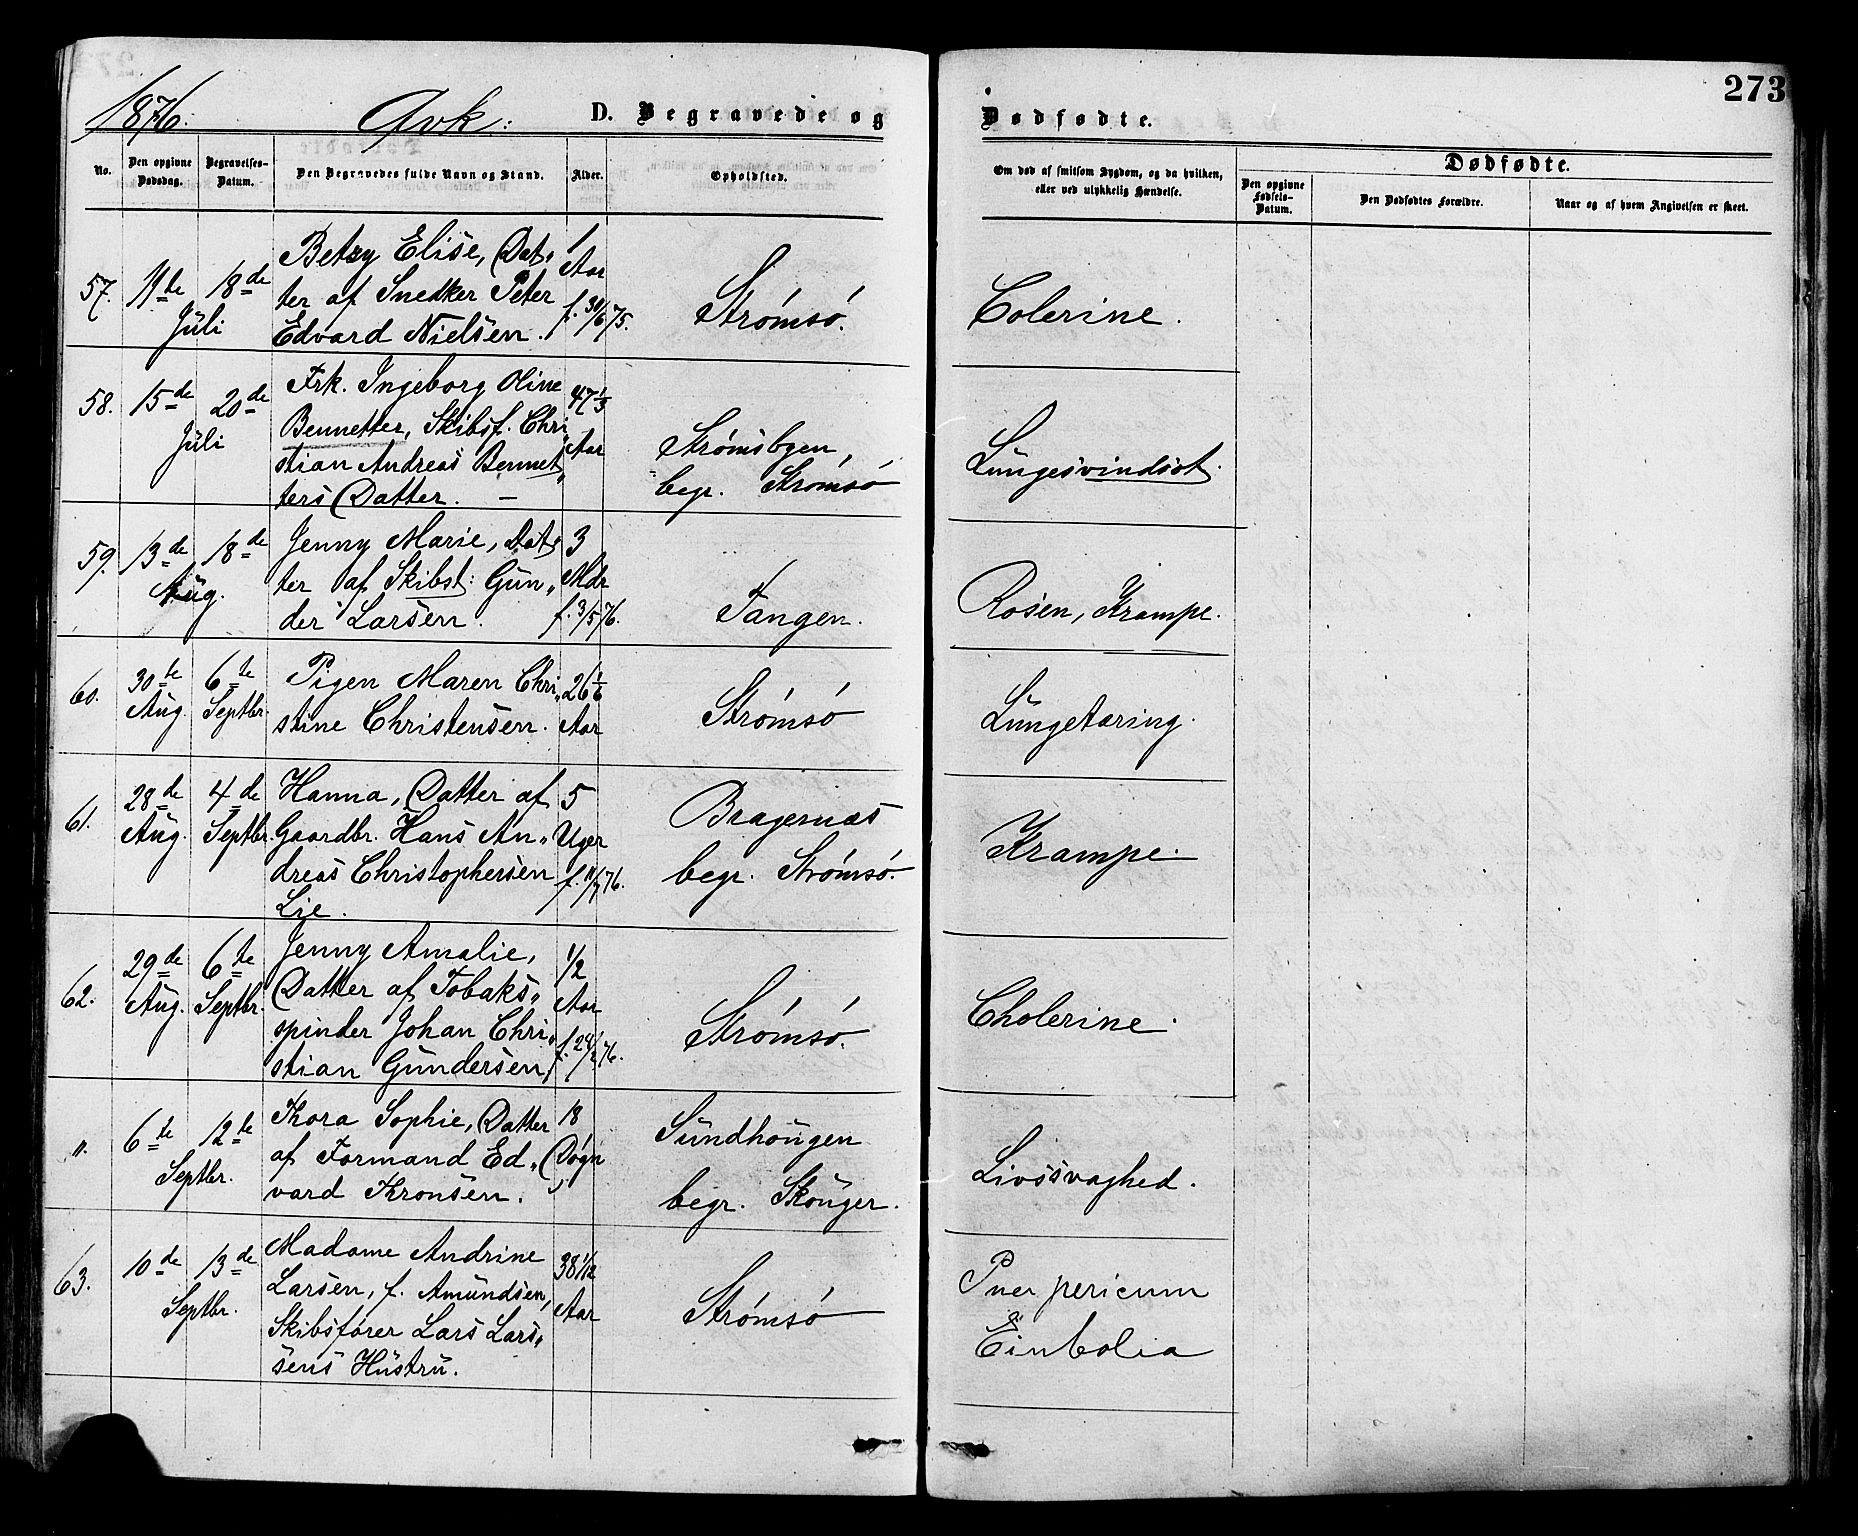 273
1876:
Qvk:
D. Begravede og
Dødfødte.
No.
Den opgivne Dødsdag.
Begravelses-Datum.
Den Begravedes fulde Navn og Stand.
Alder.
Opholdsted.
Om død af smitsom Sygdom, og da hvilken, eller ved ulykkelig Hændelse.
Dødfødte.
Den opgivne Fødsels-Datum.
Den Dødfødtes Forældre.
Naar og af hvem Angivelsen er skeet.
57.
11te
18de
Juli
Betzy Elise, Dat„
ter af Snedker Peter
Edvard Nielsen.
1
Aar
f. 30/6 75.
Strømsø.
Colerine.
58.
15de
20de
Juli
Frk. Ingeborg Oline
Bennetter, Skibsf. Chri„
stian Andreas Bennet„
ters Datter. —
47 1/3
Aar
Strømsbyen,
begr. Strømsø
Lungesvindsot.
59.
13de
18de
Aug.
Jenny Marie, Dat„
ter af Skibst: Gun„
der Larsen.
3
Mdr
f. 3/5 76.
Tangen.
Rosen, Krampe.
60.
30te
Aug.
6te
Septbr.
Pigen Maren Chri„
stine Christensen.
26 1/6
Aar
Strømsø
Lungetæring.
61.
28de
Aug.
4de
Septbr.
Hanna, Datter af
Gaardbr. Hans An„
dreas Christophersen
Lie.
5
Uger
f. 11/7 76.
Bragernæs
begr. Strømsø.
Krampe.
62.
29de
Aug.
6te
Septbr.
Jenny Amalie,
Datter af Tobaks„
spinder Johan Chri„
stian Gundersen,
1/2
Aar
f. 24/2 76.
Strømsø.
Cholerine.
„.
6te
12te
Septbr.
Thora Sophie, Datter
af Formand Ed„
vard Thronsen.
18
Døgn
Sundhougen
begr. Skouger.
Livssvaghed.
63.
10de
13de
Septbr.
Madame Andrine
Larsen, f. Amundsen,
Skibsfører Lars Lars„
sens Hustru.
38 1/12
Aar
Strømsø
Puerpericum
&
Eimbolia